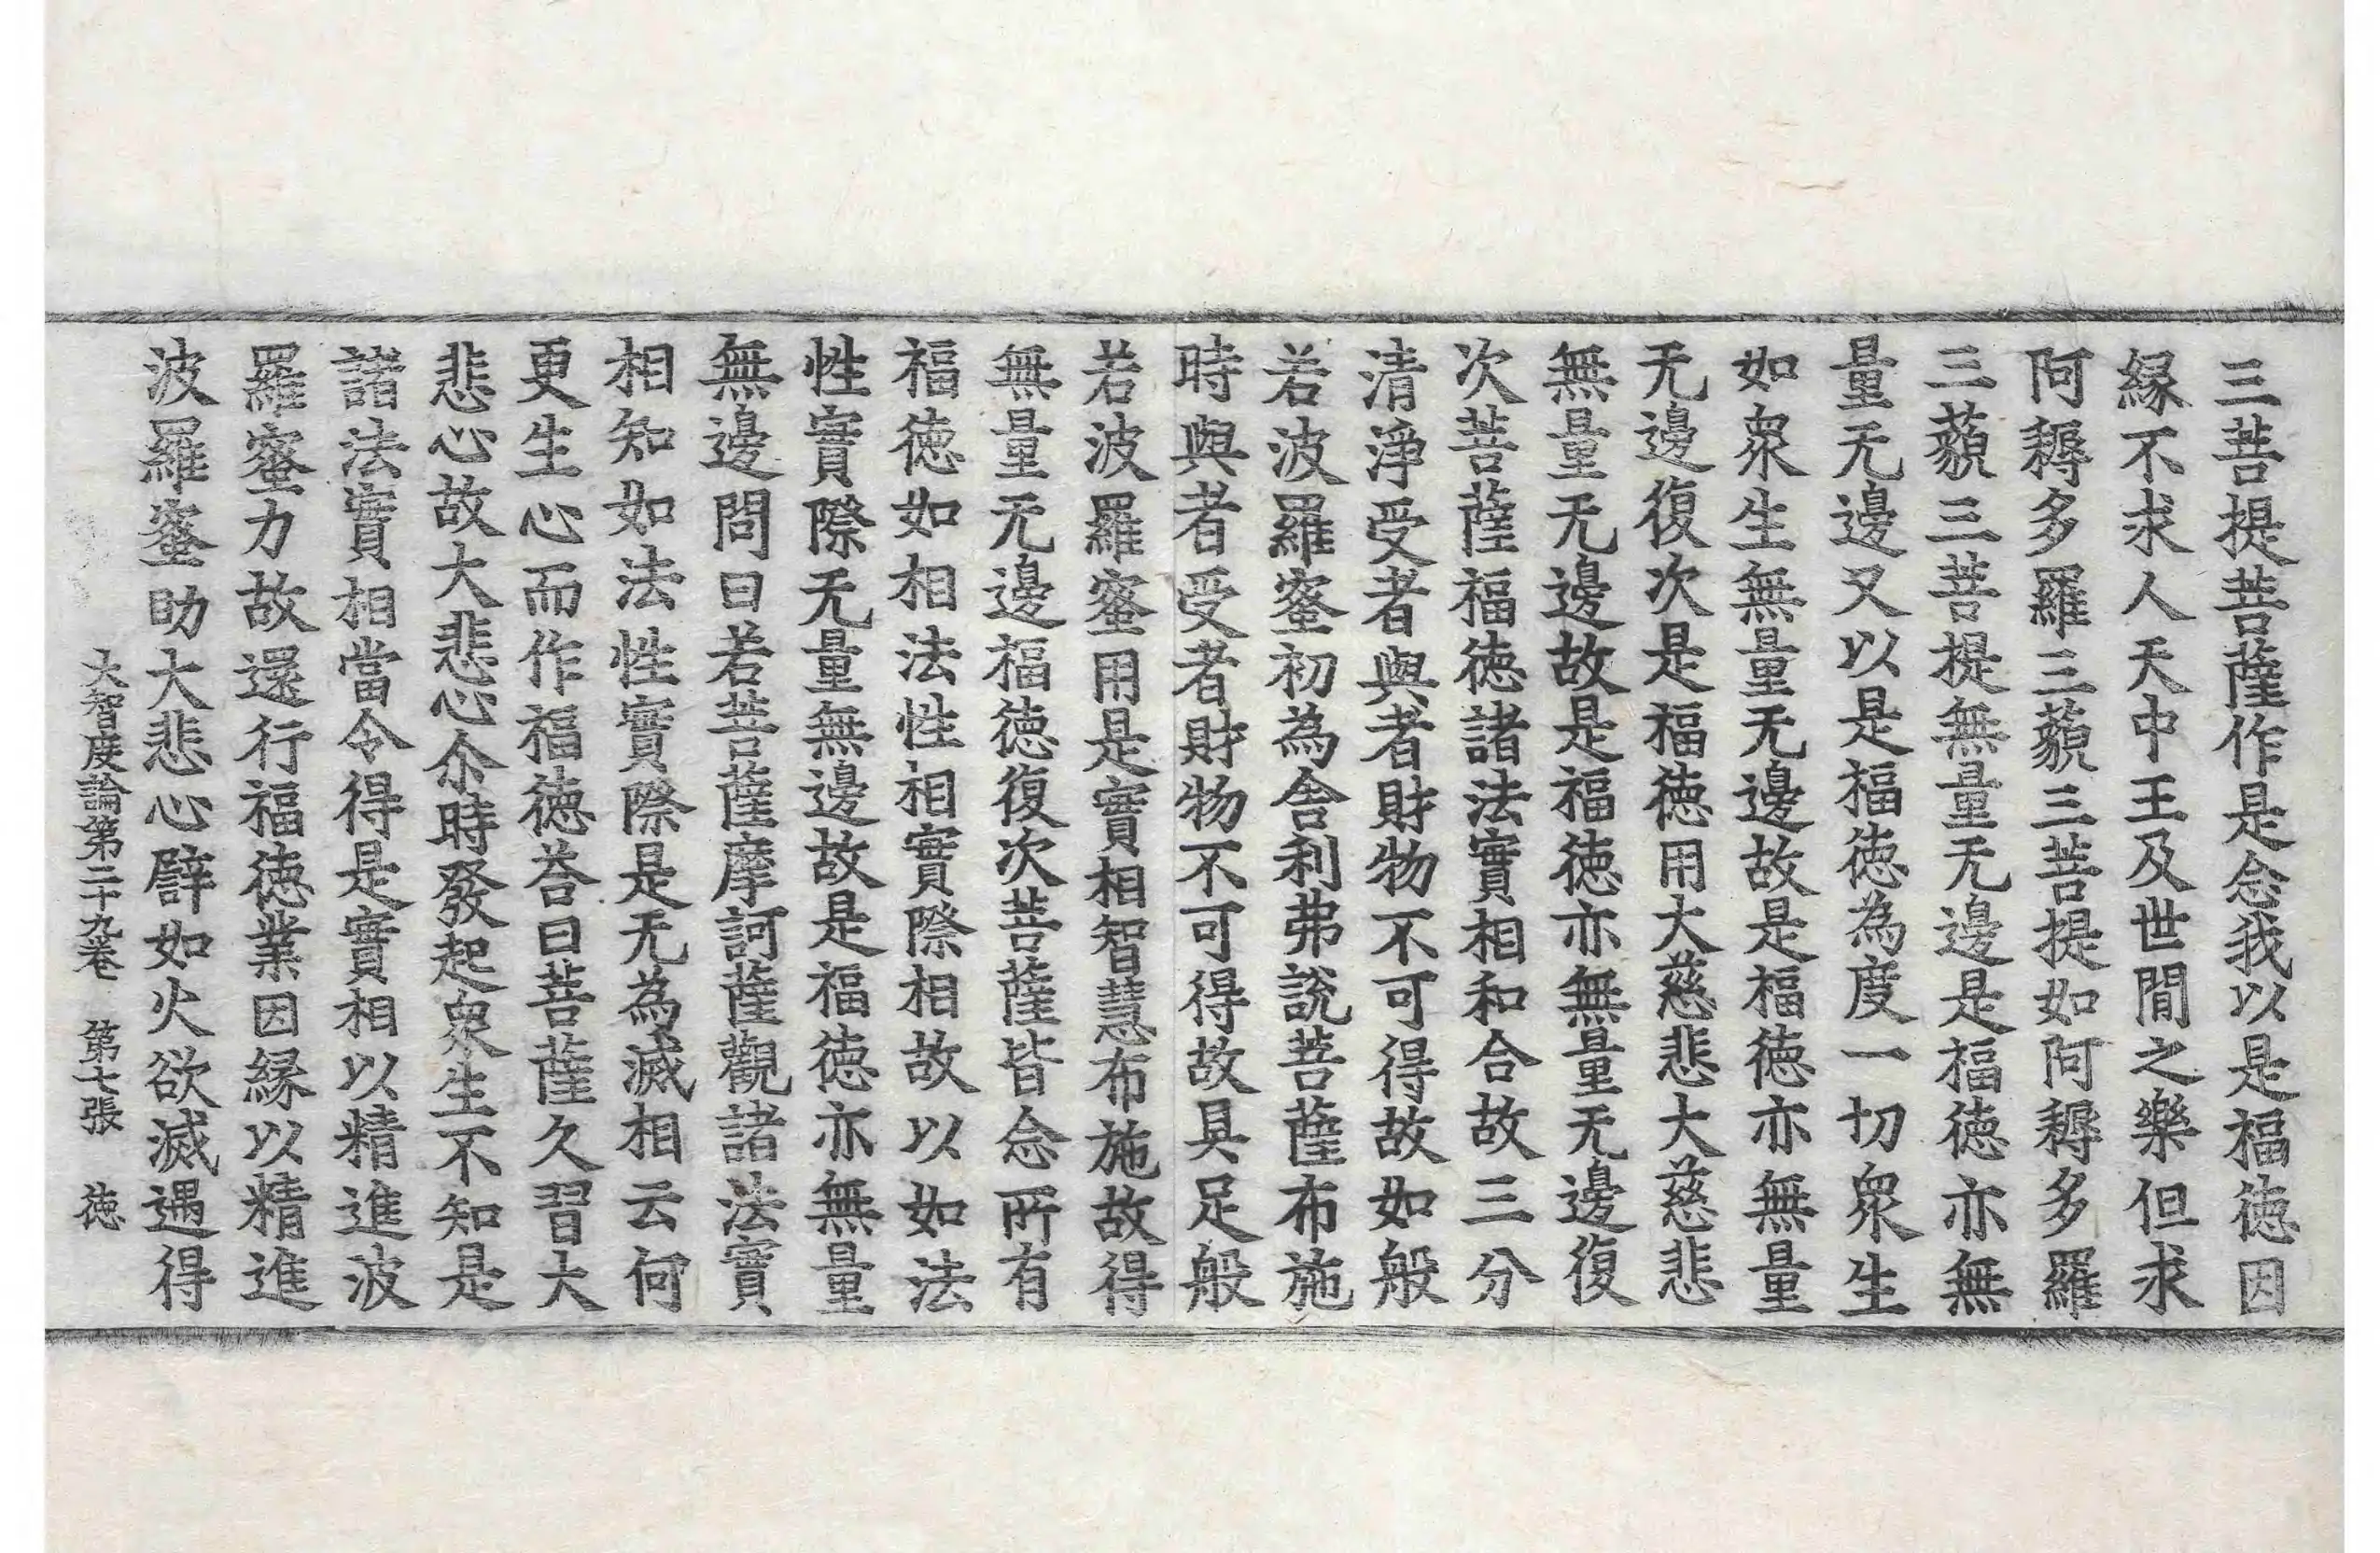 三菩提菩薩作是念我以是福德因
緣不求人天中王及世閒之樂但求
阿耨多羅三藐三菩提如阿耨多羅
三藐三菩提無量无邊是福德亦無
量无邊又以是福德為度一切衆生
如衆生無量无邊故是福德亦無量
无邊復次是福德用大慈悲大慈悲
無量无邊故是福德亦無量无邊復
次菩薩福德諸法實相和合故三分
清淨受者與者財物不可得故如般
若波羅蜜初為舍利弗說菩薩布施
時與者受者財物不可得故具足般
若波羅蜜用是實相智慧布施故得
無量无邊福德復次菩薩皆念所有
福德如相法性相實際相故以如法
性實際无量無邊故是福德亦無量
無邊問曰若菩薩摩訶薩觀諸法實
相知如法性實際是无為滅相云何
更生心而作福德荅曰菩薩久習大
悲心故大悲心尒時發起衆生不知是
諸法實相當令得是實相以精進波
羅蜜力故還行福德業因緣以精進
波羅蜜助大悲心譬如火欲滅遇得
大智度論第二十九卷 第七張 德